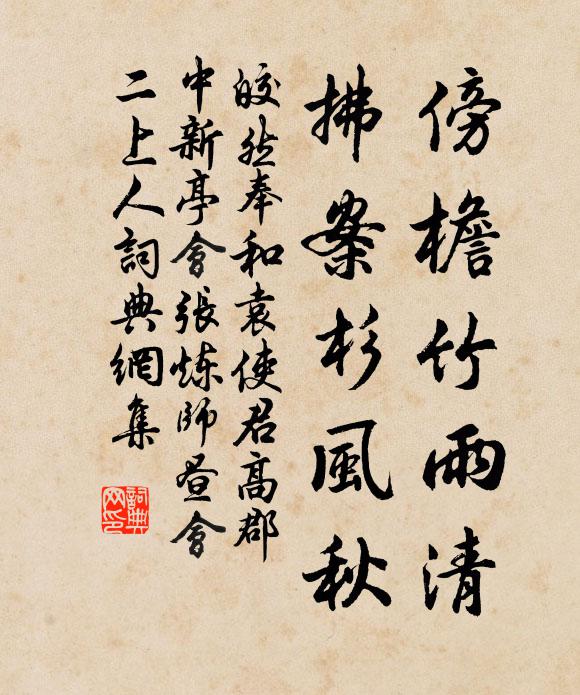 傍檐竹雨清
拂案杉風秋
皎然奉和袁使君高郡
中新亭會張煉師晝會
二上人詞典網集
詞典
网印